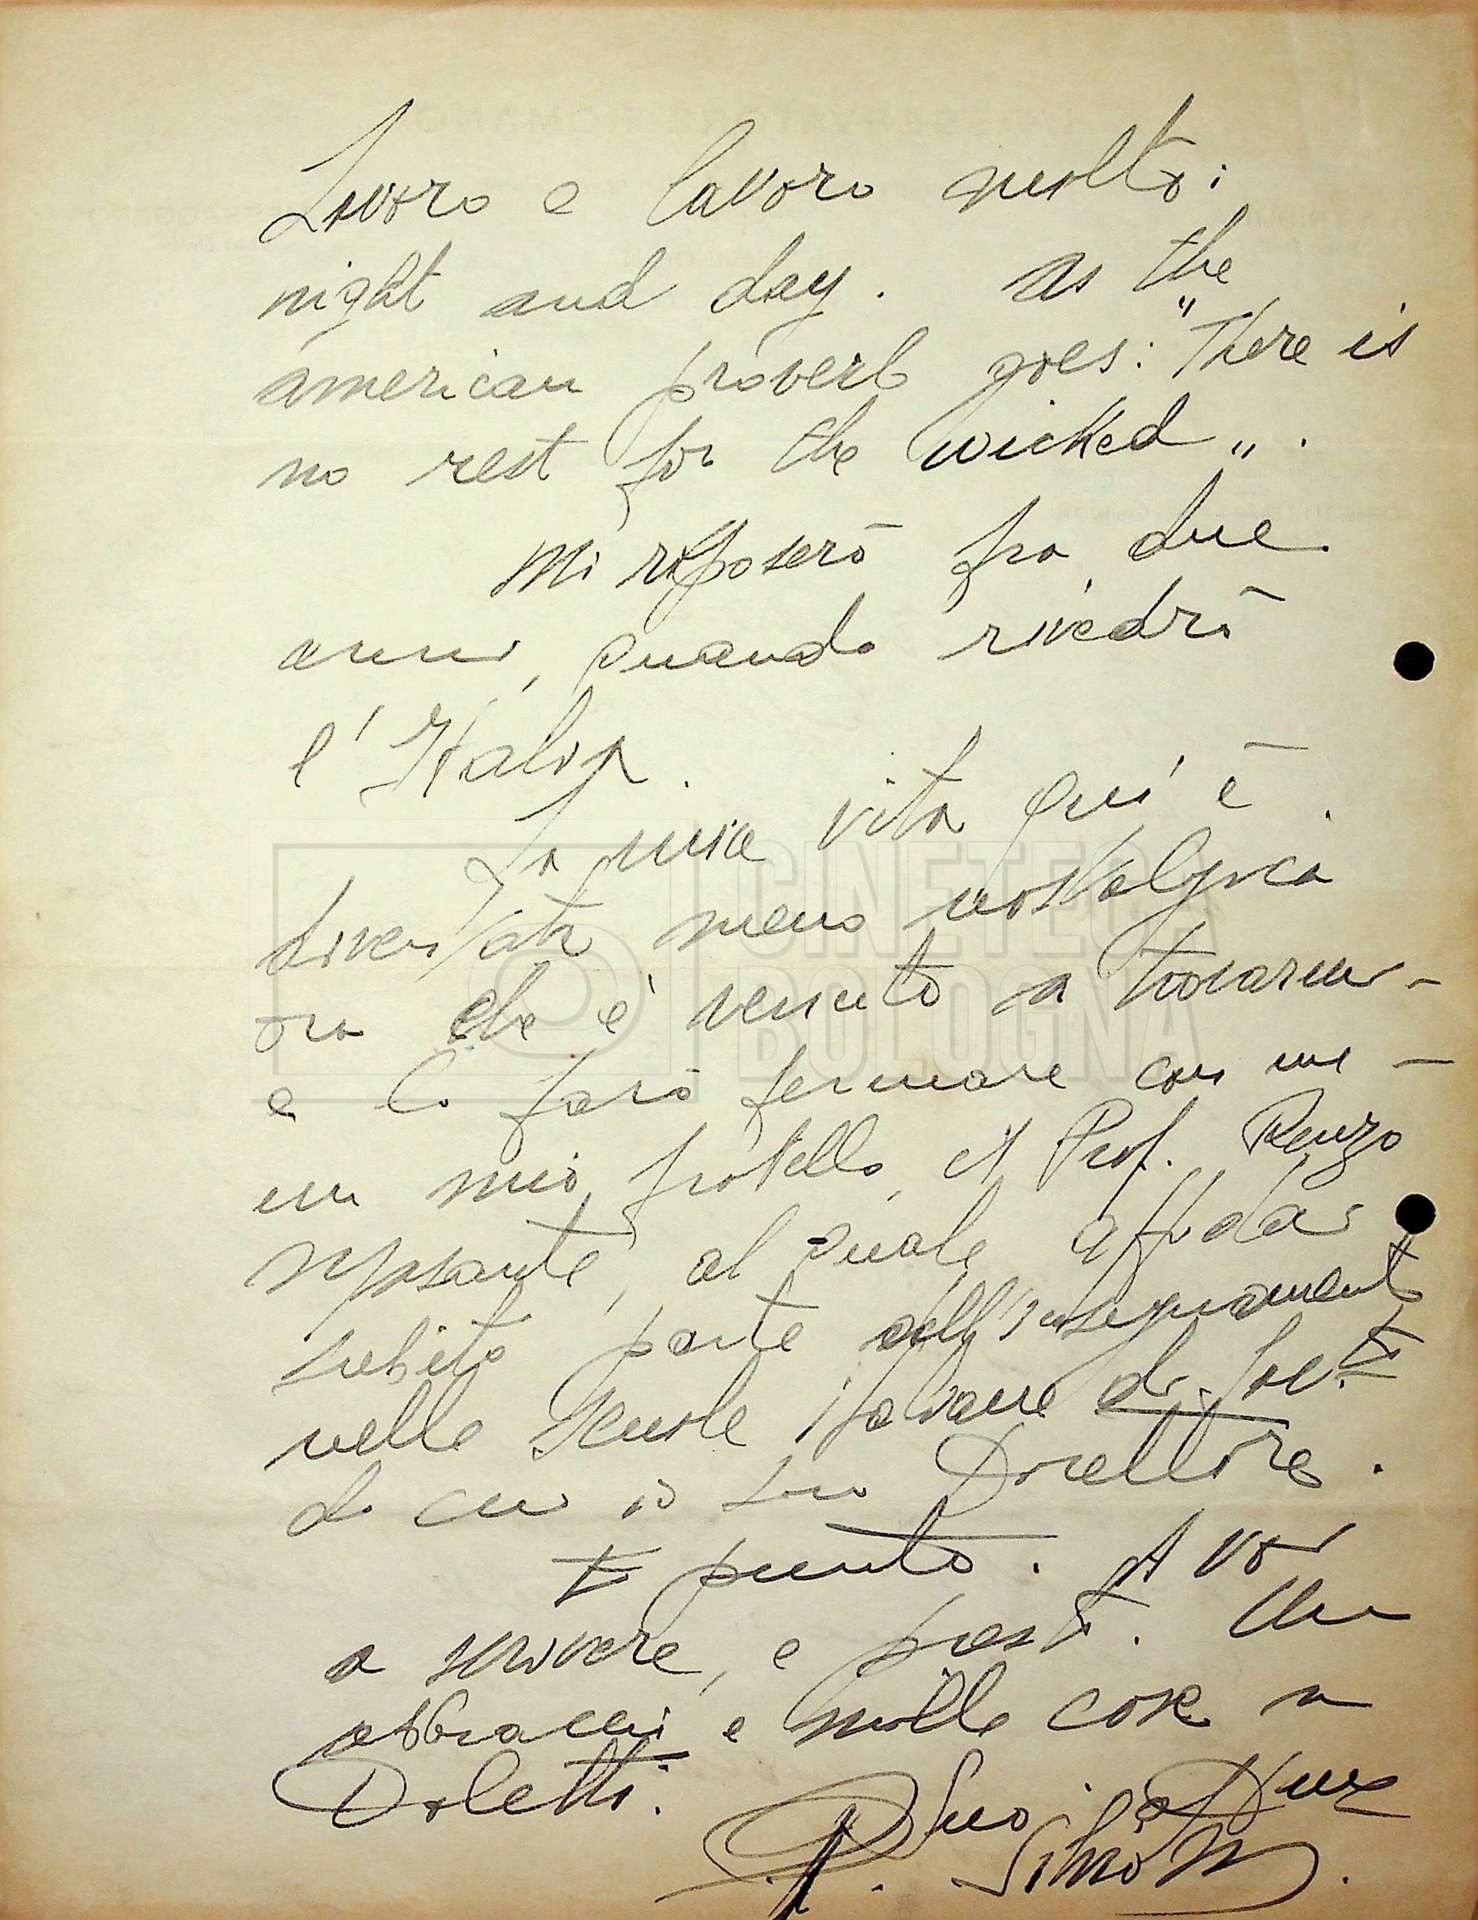 Lavoro e lavoro molto:
night and day. As the
american proverb goes: "There is
no rest for the wicked„.
Mi riposerò fra due
anni, quando rivedrò
l'Italia.
La mia vita qui è
diventata meno nostalgica
ora che è venuto a trovarmi -
e lo farò fermare con me -
un mio fratello, il Prof. Renzo
al quale affidai
subito parte dell'insegnamento
nelle Scuole italiane
di cui io sono Direttore.
E punto. A voi
a scrivere, e presto. Un
abbraccio e mille cose a
Doletti.
Suo
CINETECA
BOLOGNA